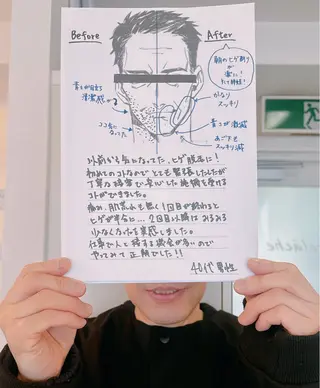 Before
After
朝のヒゲ剃りが
楽に!
青ヒゲが目立つ
清潔感
ココ気になってた
かなり
スッキリ
青コが激減
あごアも
スッキリ減
以前から気になってた、ヒゲ脱毛に!
初めてのコトなのでとても緊張しましたが
丁寧な接客で安心した施術を受ける
コトができました。
痛み、肌荒れも無く1回目が終わると
ヒゲが半分に…2回目以降はみるみる
少なくなったを実感しました。
仕事で人と接する機会が多いので
やってみて正解でした!!
40代 男性